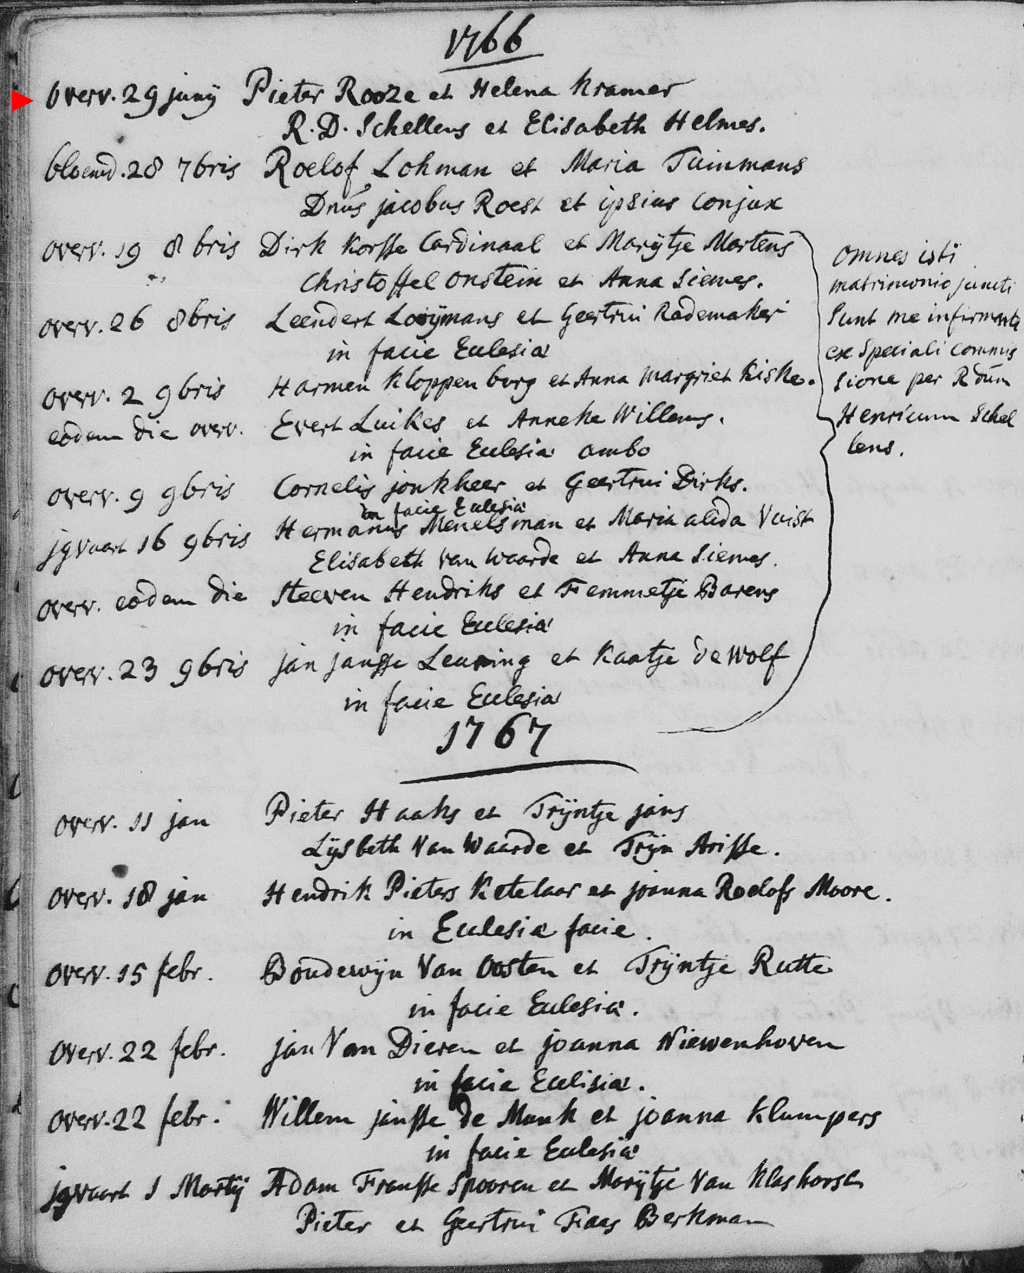 1766
overv. 29 junij Pieter Rooze et Helena Kramer
R. D. Schellens et Elisabeth Helmes.
bloemd. 28 7bris Roelof Lohman et Maria Tuinmans
Dnus jacobus Roest et ipsius conjux
overv. 19 8bris Dirk Korsse Cardinaal et Marijtje Martens
Christoffel Onstein et Anna Siemes.
overv. 26 8bris Leendert Looijmans et Geertrui Rademaker
in facie Eclesiæ
overv. 2 9bris Harmen Kloppenborg et Anna Margriet Kiske.
eodem die overv. Evert Luikes et Anneke Willems.
in facie Eclesiæ ambo
overv. 9 9bris Cornelis jonkheer et Geertrui Dirks.
in facie Eclesiæ
jgvaart 16 9bris Hermanus Menelsman et Maria alida Vuist
Elisabeth van Waarde et Anna Siemes.
overv. eodem die Steeven Hendriks et Femmetje Barens
in facie Eclesiæ
overv. 23 9bris jan jansse Leuning et Kaatje de Wolf
in facie Eclesiæ
omnes isti
matrimonio juncti
Sunt me infirmante
ex Speciali commis
sione per Rdum
Henricum Schel
lens.
1767
overv. 11 jan Pieter Haaks et Trijntje jans
Lijsbeth Van Waarde et Trijn Arisse.
overv. 18 jan Hendrik Pieters Ketelaar et joanna Roelofs Moore.
in Eclesiæ facie.
overv. 15 febr. Boudewijn Van Oosten et Trijntje Rutte
in facie Eclesiæ.
overv. 22 febr. jan Van Dieren et joanna Niewenhoven
in facie Eclisiæ.
overv. 22 febr. Willem jansse de Munk et joanna Klumpers
in facie Eclesiæ
jgvaart 1 Martij Adam Fransse Spooren et Marijtje Van Klashorst
Pieter et Geertrui Faas Berkman